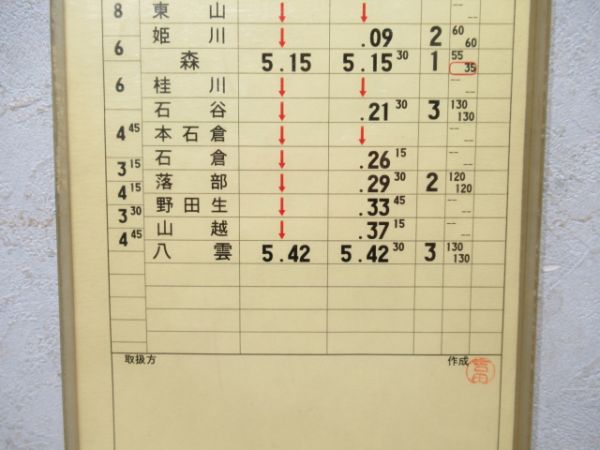 8 東山 ↓ ↓ -- --
姫川 ↓ .09 2 60 60
6
森 5.15 5.15 30 1 55 35
6 桂川 ↓ ↓ -- --
石谷 ↓ .21 30 3 130 130
4 45 本石倉 ↓ ↓ -- --
石倉 ↓ .26 15 -- --
3 15
落部 ↓ .29 30 2 120 120
4 15
野田生 ↓ .33 45 -- --
3 30
山越 ↓ .37 15 -- --
4 45
八雲 5.42 5.42 30 3 130 130
取扱方 作成